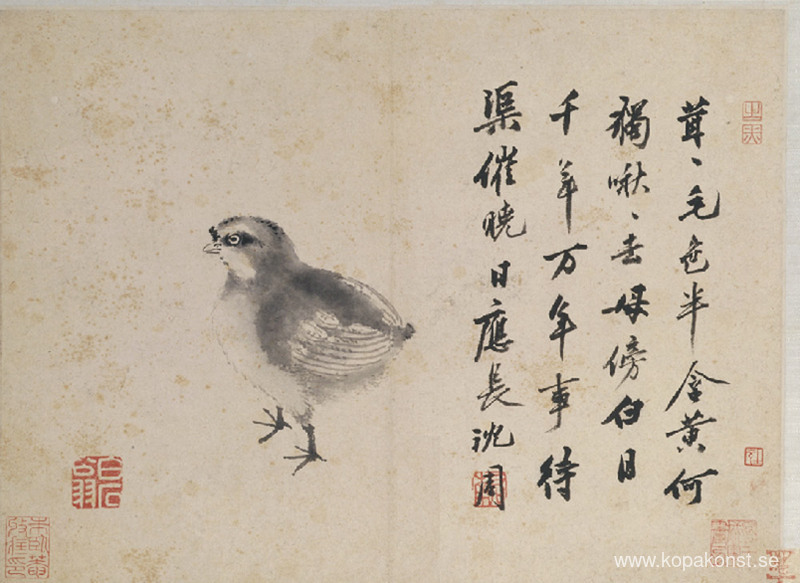 茸〻毛色半含黄何
獨啾〻去母傍白日
千年万年事待
渠催曉日應長沈周
白石翁
www.kopakonst.se